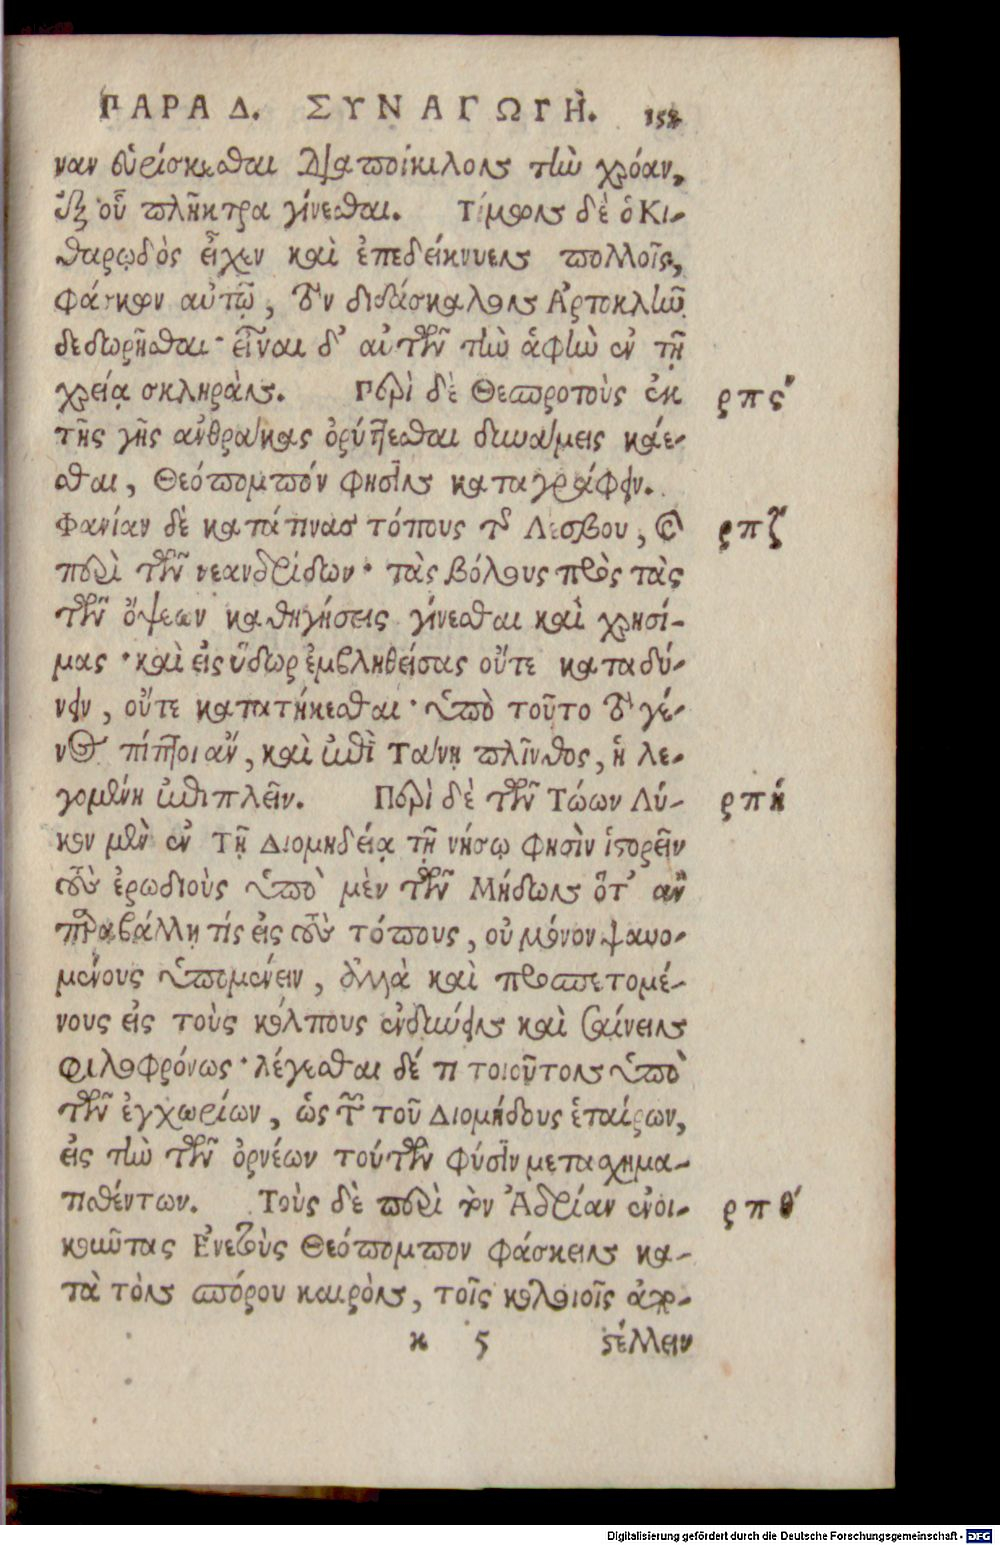 ΠΑΡΑΔ. ΣΥΝΑΓΩΓῊ. 152
ναν εὑρίσκεσθαι διαποίκιλον τὴν χρόαν,
ἐξ οὗ πλῆκτρα γίνεσθαι. Τίμων δὲ ὁ Κι-
θαρῳδὸς εἶχεν καὶ ἐπεδείκνυεν πολλοῖς,
φάσκων αὐτῷ, τὸν διδάσκαλον Ἀρτοκλῆν
δεδωρῆσθαι· εἶναι δ' αὐτῶν τὴν ἁφὴν ἐν τῇ
χρείᾳ σκληράν. Περὶ δὲ Θεσπροτοὺς ἐκ ρπς΄
τῆς γῆς ἄνθρακας ὀρύττεσθαι δυναμεις κάε-
σθαι, Θεόπομπόν φησὶν καταγράφειν.
Φανίαν δὲ κατά τινας τόπους τῆς Λέσβου, καὶ ρπζ΄
περὶ τῶν νεανδρίδων· τὰς βόλους πρὸς τὰς
τῶν ὄψεων καθηγήσεις γίνεσθαι καὶ χρησί-
μας· καὶ εἰς ὕδωρ ἐμβληθείσας οὔτε καταδύ-
νειν, οὔτε κατατήκεσθαι· ὑπὸ τοῦτο τὸ γέ-
νος πίπτοι ἂν, καὶ ἐπὶ Τάνῃ πλῖνθος, ἡ λε-
γομένη ἐπιπλεῖν. Περὶ δὲ τῶν Τώων Λύ- ρπή
κον μὲν ἐν Τῇ Διομηδείᾳ τῇ νήσῳ φησὶν ἱστορεῖν
τοὺς ἐρωδιοὺς ὑπὸ μὲν τῶν Μήδων ὅτ' ἂν
παραβάλλῃ τίς εἰς τοὺς τόπους, οὐ μόνον ψαυο-
μένους ὑπομένειν, ἀλλὰ καὶ προσπετομέ-
νους εἰς τοὺς κόλπους ἐνδύνειν καὶ σαίνειν
φιλοφρόνως· λέγεσθαι δέ τι τοιοῦτον ὑπὸ
τῶν ἐγχωρίων, ὡς τῶν τοῦ Διομήδους ἑταίρων,
εἰς τὴν τῶν ὀρνέων τούτων φύσιν μετασχημα-
τισθέντων. Τοὺς δὲ περὶ τὸν Ἀδρίαν ἐνοι- ρπθ΄
κοῦντας Ἐνετοὺς Θεόπομπον φάσκειν κα-
τὰ τὸν σπόρου καιρὸν, τοῖς κολοιοῖς ἀπο-
κ 5 στέλλειν
Digitalisierung gefördert durch die Deutsche Forschungsgemeinschaft - DFG